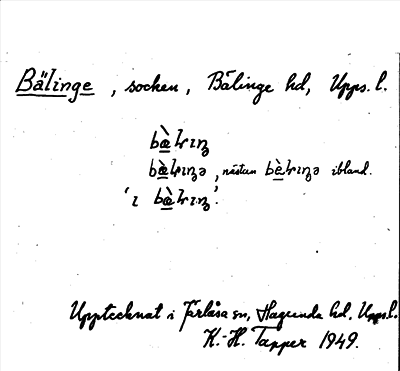 Bälinge, socken, Bälinge hd, Upps. l.
bæ̀lɪŋ
bæ̀lɪŋə, nästan bèlɪŋə ibland.
'ɪ bæ̀lɪŋ'.
Upptecknat i Järlåsa sn, Hagunda hd. Upps. l.
K.-H. Tapper 1949.